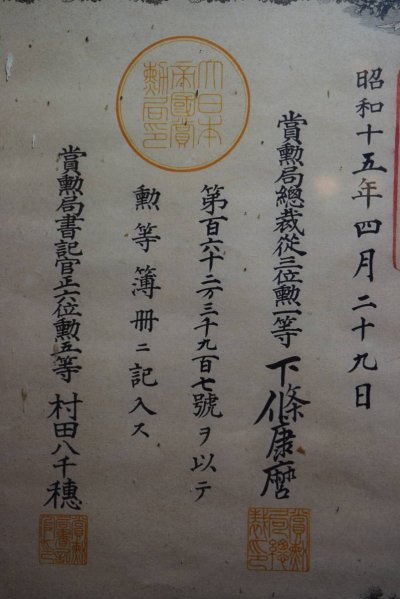 昭和十五年四月二十九日
賞勲局總裁從三位勲一等 下條康麿
第百六十二万三千九百七號ヲ以テ
勲等簿册ニ記入ス
賞勲局書記官正六位勲五等 村田八千穗
大日本帝國賞勲局印
賞勲局總裁印